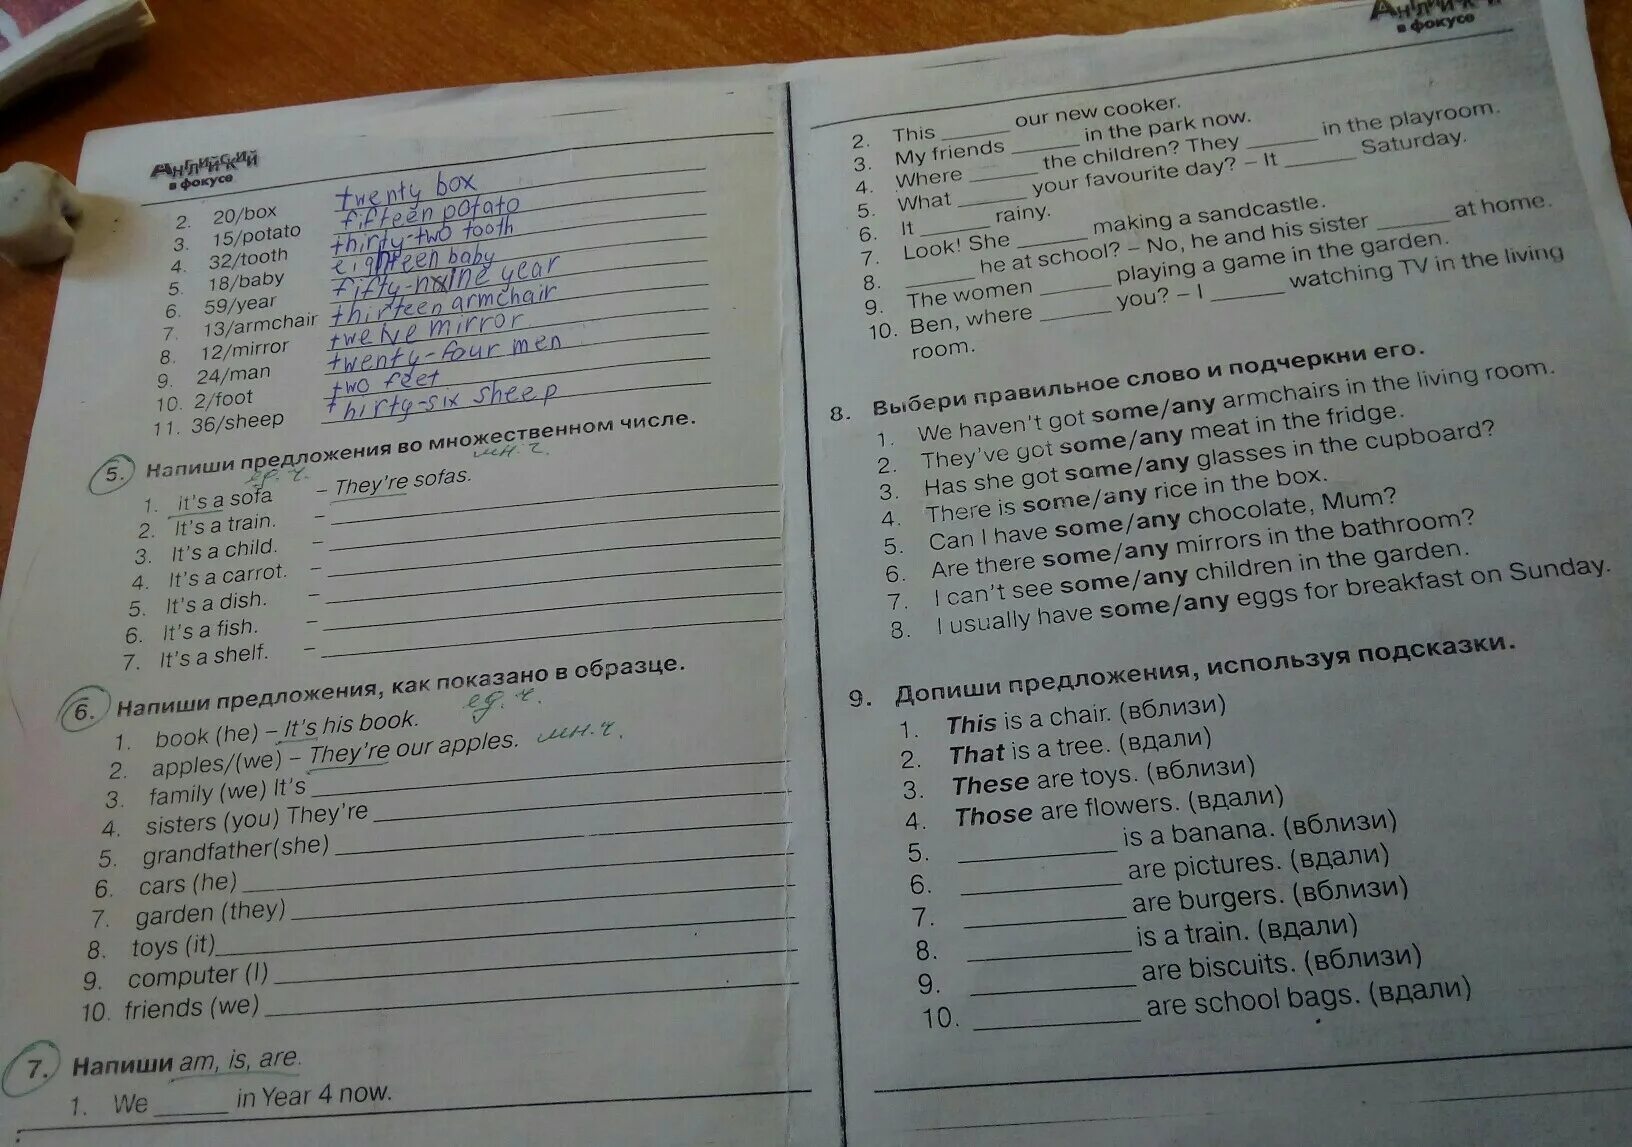 Английский
в фокусе
2. 20/box twenty box
3. 15/potato fifteen potato
4. 32/tooth thirty-two tooth
5. 18/baby eighteen baby
6. 59/year fifty-nine year
7. 13/armchair thirteen armchair
8. 12/mirror twelve mirror
9. 24/man twenty-four men
10. 2/foot two feet
11. 36/sheep thirty-six sheep
5. Напиши предложения во множественном числе.
ед. ч. мн. ч.
1. it's a sofa – They're sofas.
2. It's a train. –
3. It's a child. –
4. It's a carrot. –
5. It's a dish. –
6. It's a fish. –
7. It's a shelf. –
6. Напиши предложения, как показано в образце.
1. book (he) – It's his book. ед. ч.
2. apples/(we) – They're our apples. мн. ч.
3. family (we) It's
4. sisters (you) They're
5. grandfather(she)
6. cars (he)
7. garden (they)
8. toys (it)
9. computer (I)
10. friends (we)
7. Напиши am, is, are.
1. We ______ in Year 4 now.
Английский
в фокусе
2. This ______ our new cooker.
3. My friends ______ in the park now.
4. Where ______ the children? They ______ in the playroom.
5. What ______ your favourite day? – It ______ Saturday.
6. It ______ rainy.
7. Look! She ______ making a sandcastle.
8. ______ he at school? – No, he and his sister ______ at home.
9. The women ______ playing a game in the garden.
10. Ben, where ______ you? – I ______ watching TV in the living
room.
8. Выбери правильное слово и подчеркни его.
1. We haven't got some/any armchairs in the living room.
2. They've got some/any meat in the fridge.
3. Has she got some/any glasses in the cupboard?
4. There is some/any rice in the box.
5. Can I have some/any chocolate, Mum?
6. Are there some/any mirrors in the bathroom?
7. I can't see some/any children in the garden.
8. I usually have some/any eggs for breakfast on Sunday.
9. Допиши предложения, используя подсказки.
1. This is a chair. (вблизи)
2. That is a tree. (вдали)
3. These are toys. (вблизи)
4. Those are flowers. (вдали)
5. ______ is a banana. (вблизи)
6. ______ are pictures. (вдали)
7. ______ are burgers. (вблизи)
8. ______ is a train. (вдали)
9. ______ are biscuits. (вблизи)
10. ______ are school bags. (вдали)